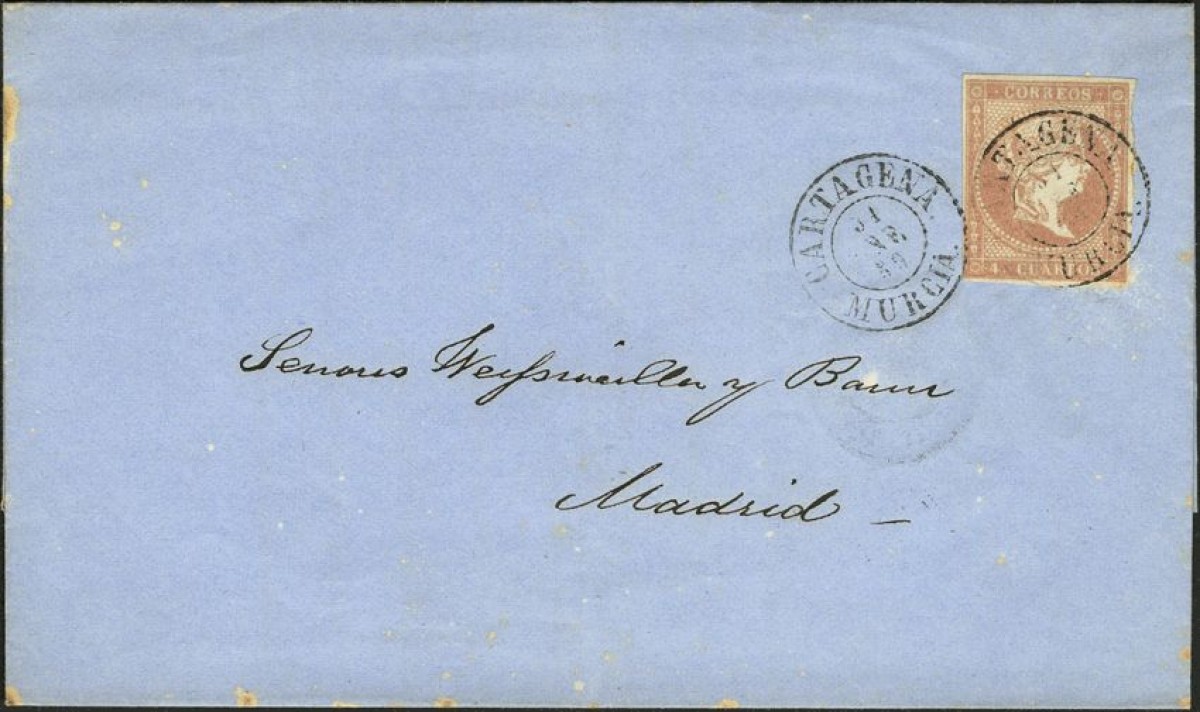 CORREOS
4. CUARTOS
TAGENA
URCIA
CARTAGENA.
MURCIA.
Senores Weissweiller y Bauer
Madrid –